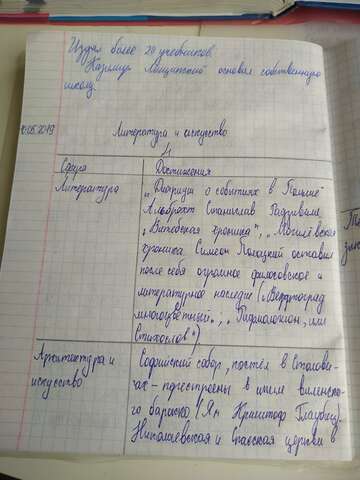 Издал более 20 учебников.
Казимир Лыщинский основал собственную
школу.
10.05.2019
Литература и искусство
Сфера Достижения
Литература „Диариуш о событиях в Польше“
Альбрехт Станислав Радзивилл,
„Витебская хроника“, „Могилёвская
хроника. Симеон Полоцкий оставил
после себя огромное философское и
литературное наследие („Вертоград
многоцветный“, „Рифмологион, или
Стихослов“)
Архитектура и Софийский собор, костёл в Столови-
искусство чах - перестроены в стиле виленско-
го барокко (Ян Криштоф Глаубиц).
Николаевская и Спасская церкви в